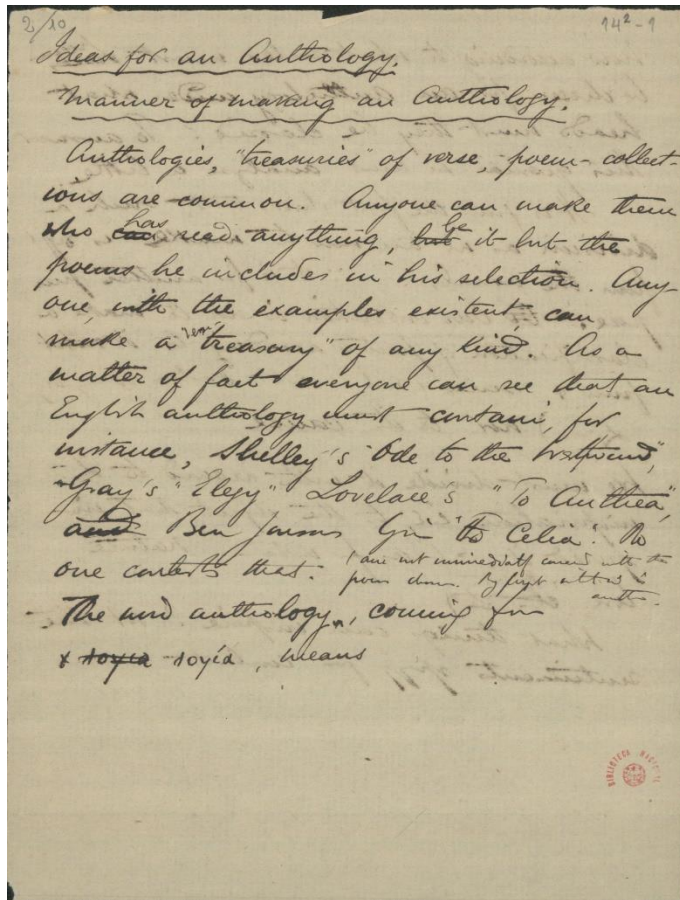 2/10
14² - 1
Ideas for an Anthology.
Manner of making an Anthology.
Anthologies, "treasuries" of verse, poem-collect-
ions are common. Anyone can make them
who can has read anything, but be it but the
poems he includes in his selection. Any-
one, with the examples existent, can
make a "treasury" of any kind. As a
matter of fact everyone can see that an
English anthology must contain, for
instance, Shelley's "Ode to the Westwind",
Gray's "Elegy" Lovelace's "To Anthea",
and Ben Jonson's "To Celia". No
one contests that.
I am not immediately concerned with the
poem chosen. My first
The word anthology, coming from
means
BIBLIOTECA NACIONAL